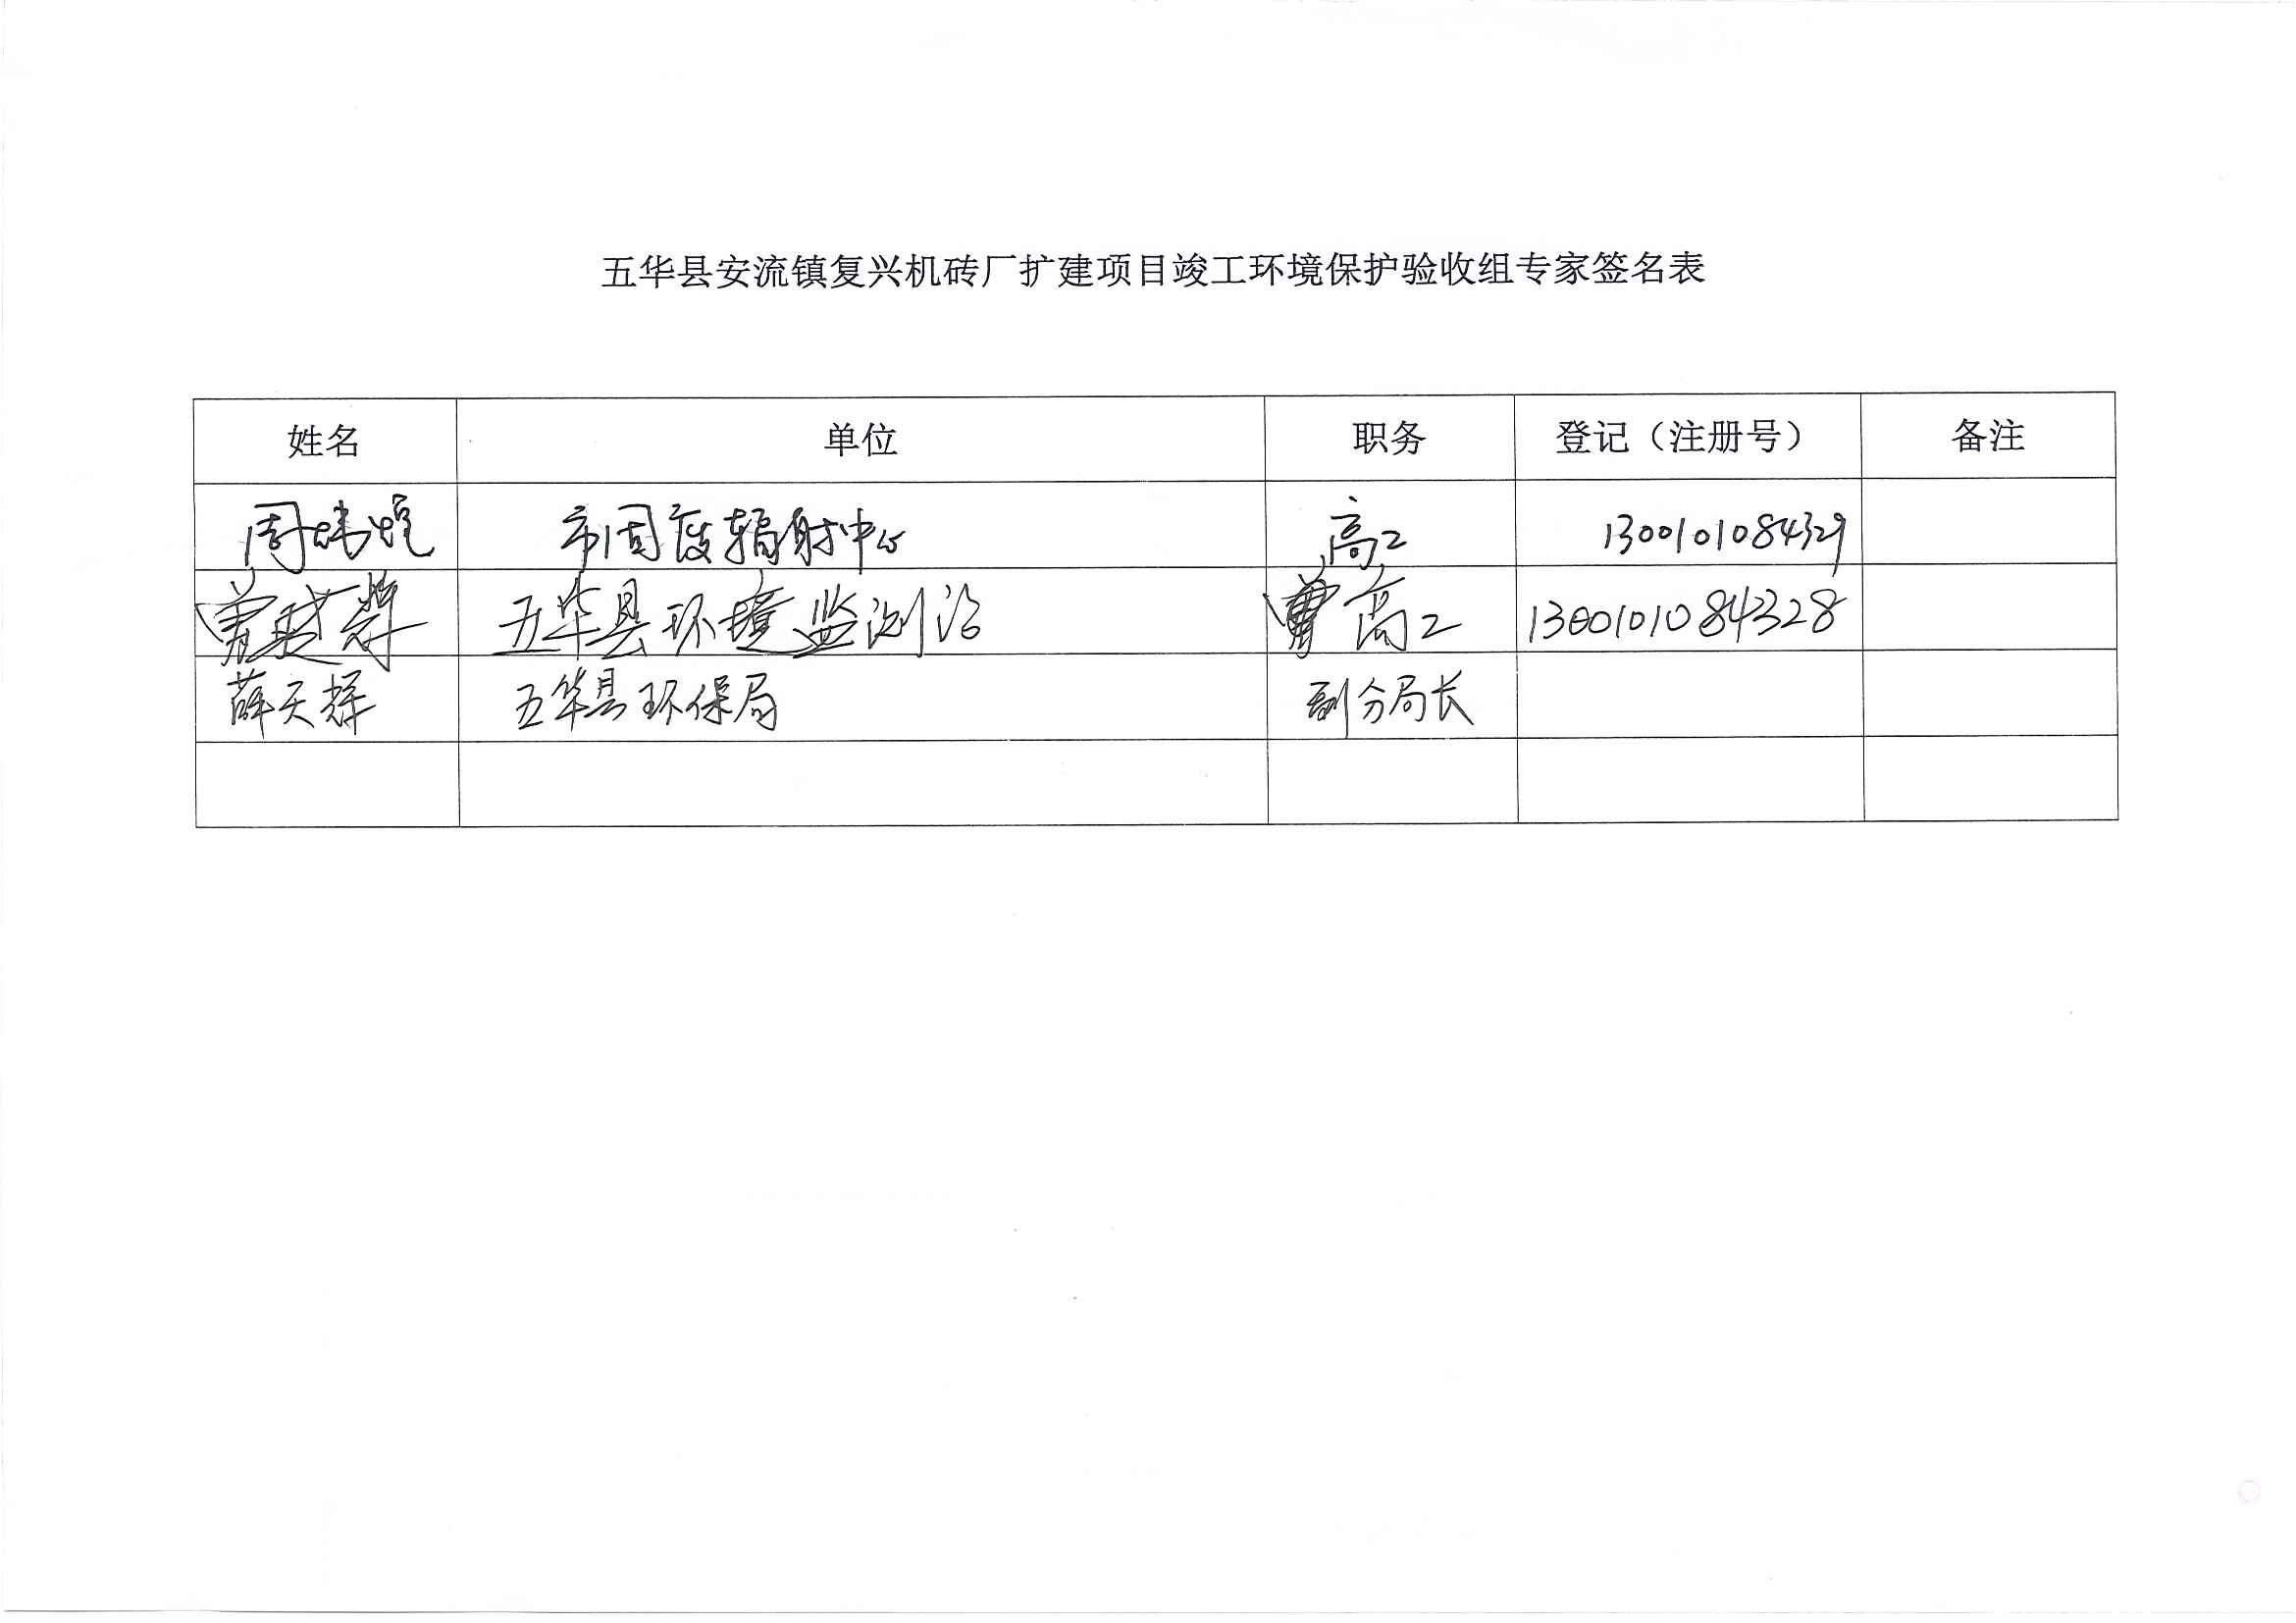 五华县安流镇复兴机砖厂扩建项目竣工环境保护验收组专家签名表
姓名 单位 职务 登记（注册号） 备注
周炜煌 市固废辐射中心 高工 1300101084329
五华县环境监测站 高工 1300101084328
薛天辉 五华县环保局 副分局长